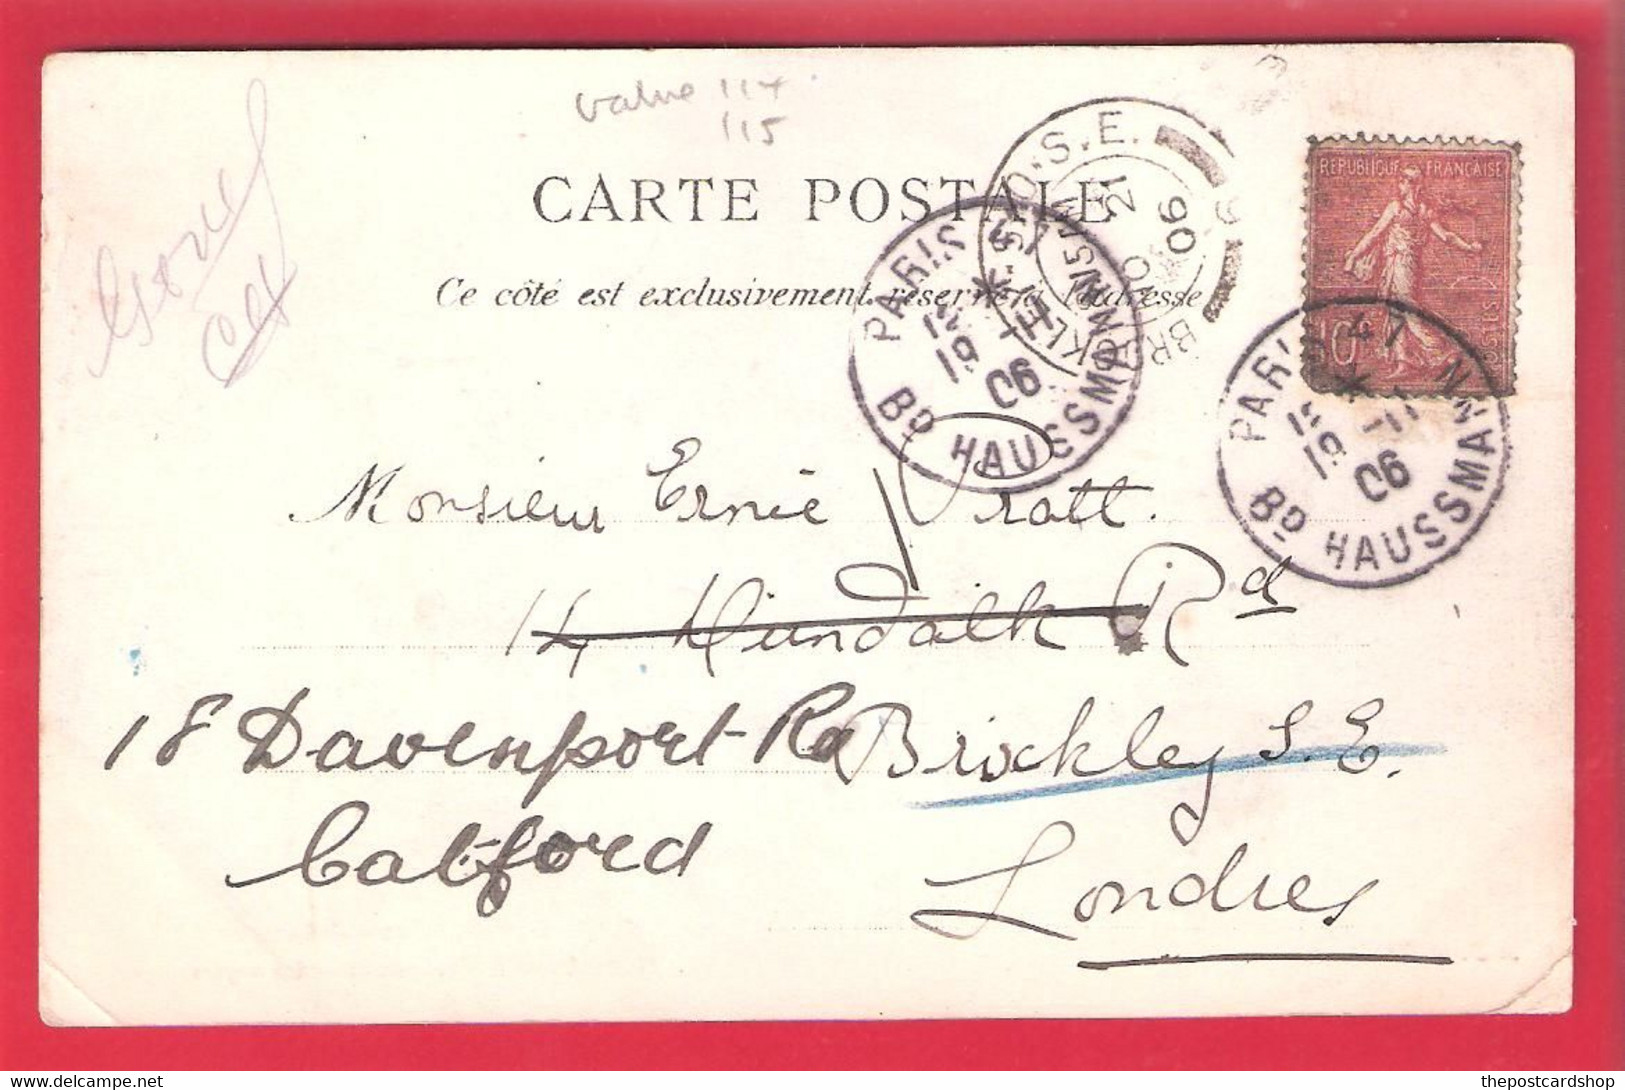 value 117
115
CARTE POSTALE
Ce côté est exclusivement réservé à l'adresse
REPUBLIQUE FRANÇAISE
10
POSTES
BROCKLEY S.O. S.E.
NO 21
06
PARIS 47
19 -11
06
Bd HAUSSMANN
PARIS 47
19 -11
06
Bd HAUSSMANN
Monsieur Ernie Pratt.
14 Dundalk Rd
18 Davenport Rd Brockley S.E.
Catford
Londres
thepostcardshop